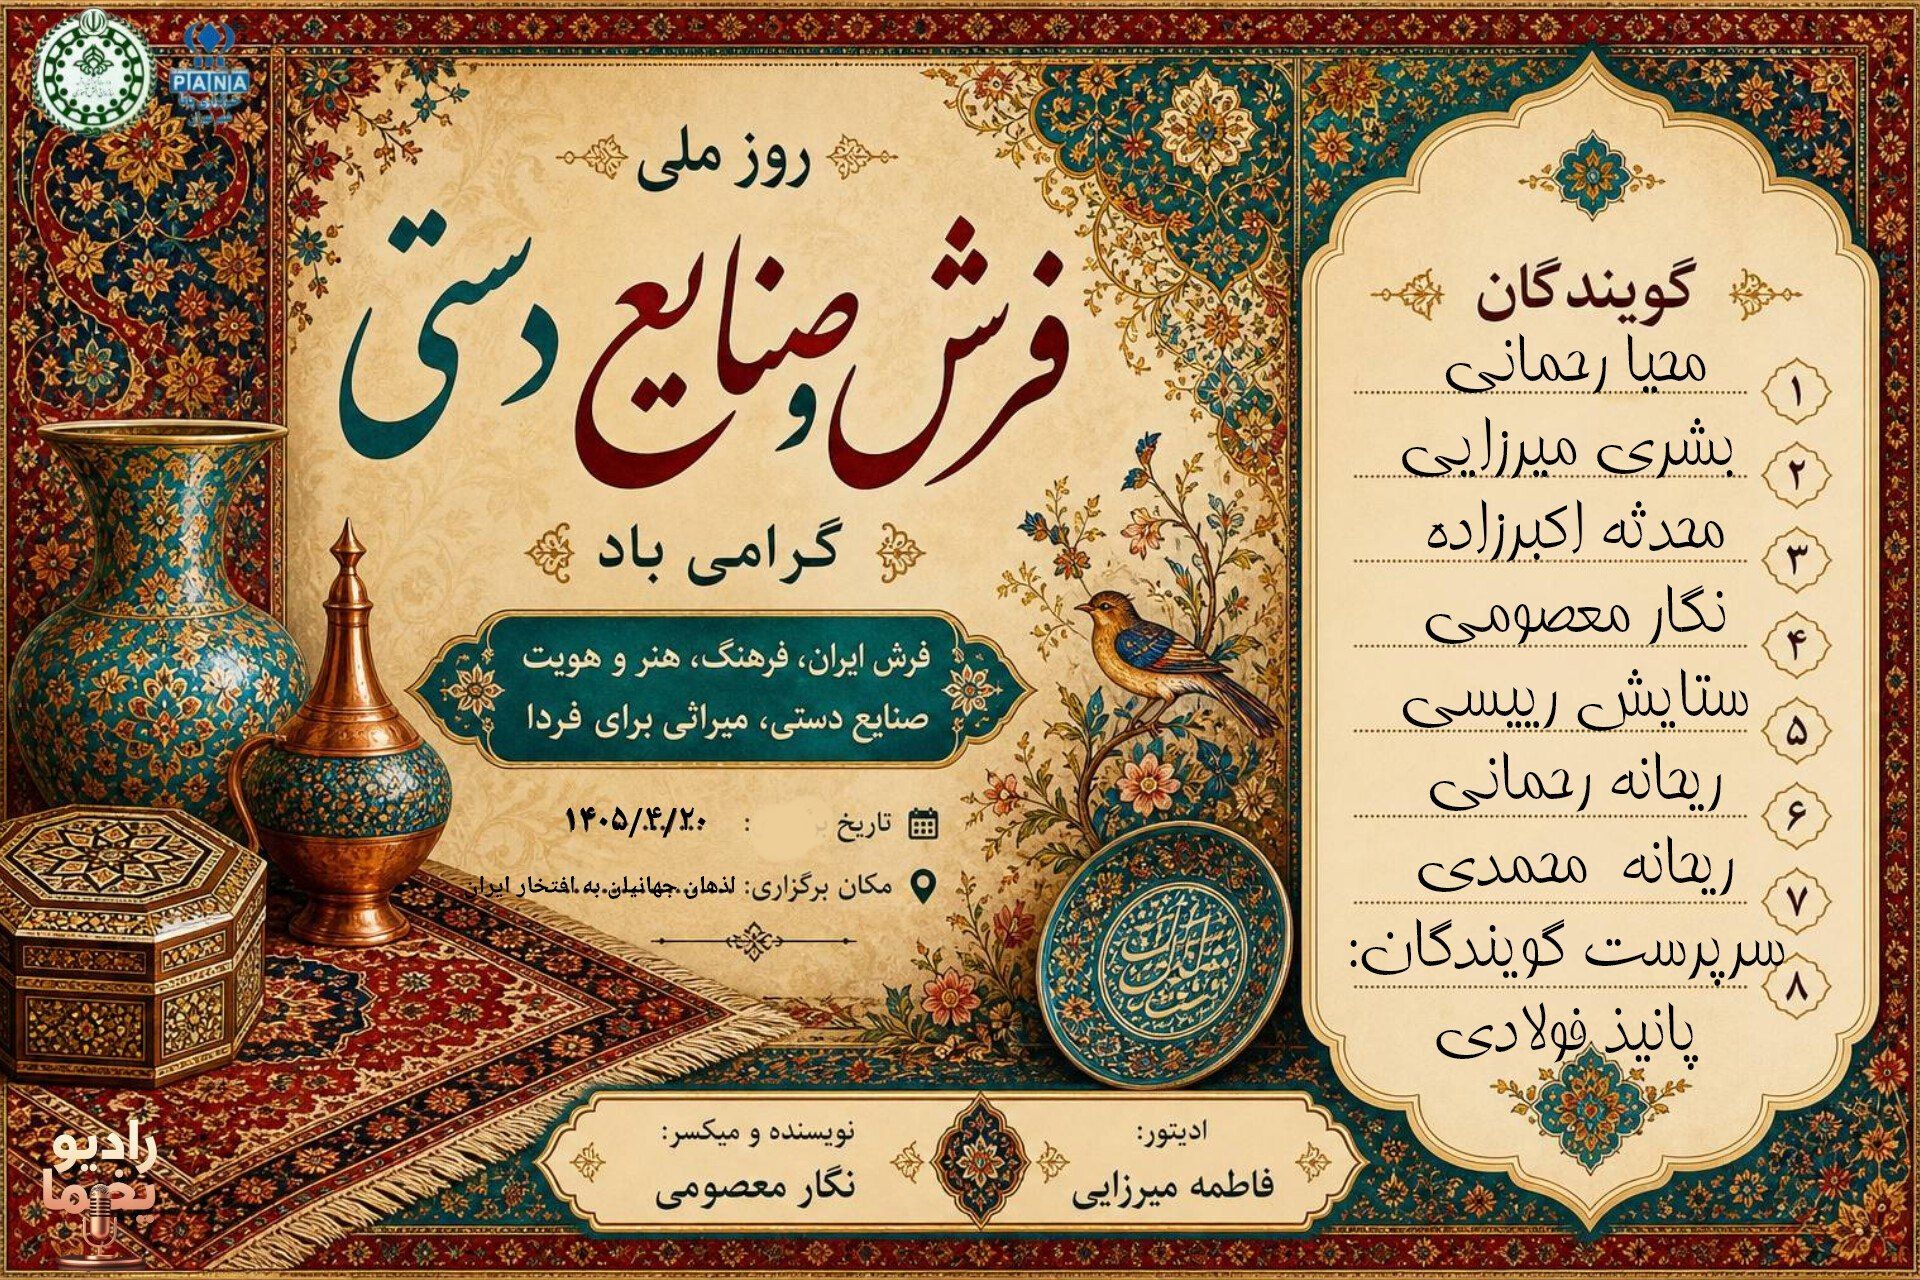 PANA
روز ملی
فرش و صنایع دستی
گرامی باد
فرش ایران، فرهنگ، هنر و هویت
صنایع دستی، میراثی برای فردا
تاریخ : ۱۴۰۵/۴/۲۰
مکان برگزاری: اذهان جهانیان به افتخار ایران
گویندگان
۱ محیا رحمانی
۲ بشری میرزایی
۳ محدثه اکبرزاده
۴ نگار معصومی
۵ ستایش رییسی
۶ ریحانه رحمانی
۷ ریحانه محمدی
۸ سرپرست گویندگان:
پانیذ فولادی
ادیتور:
فاطمه میرزایی
نویسنده و میکسر:
نگار معصومی
رادیو
یغما